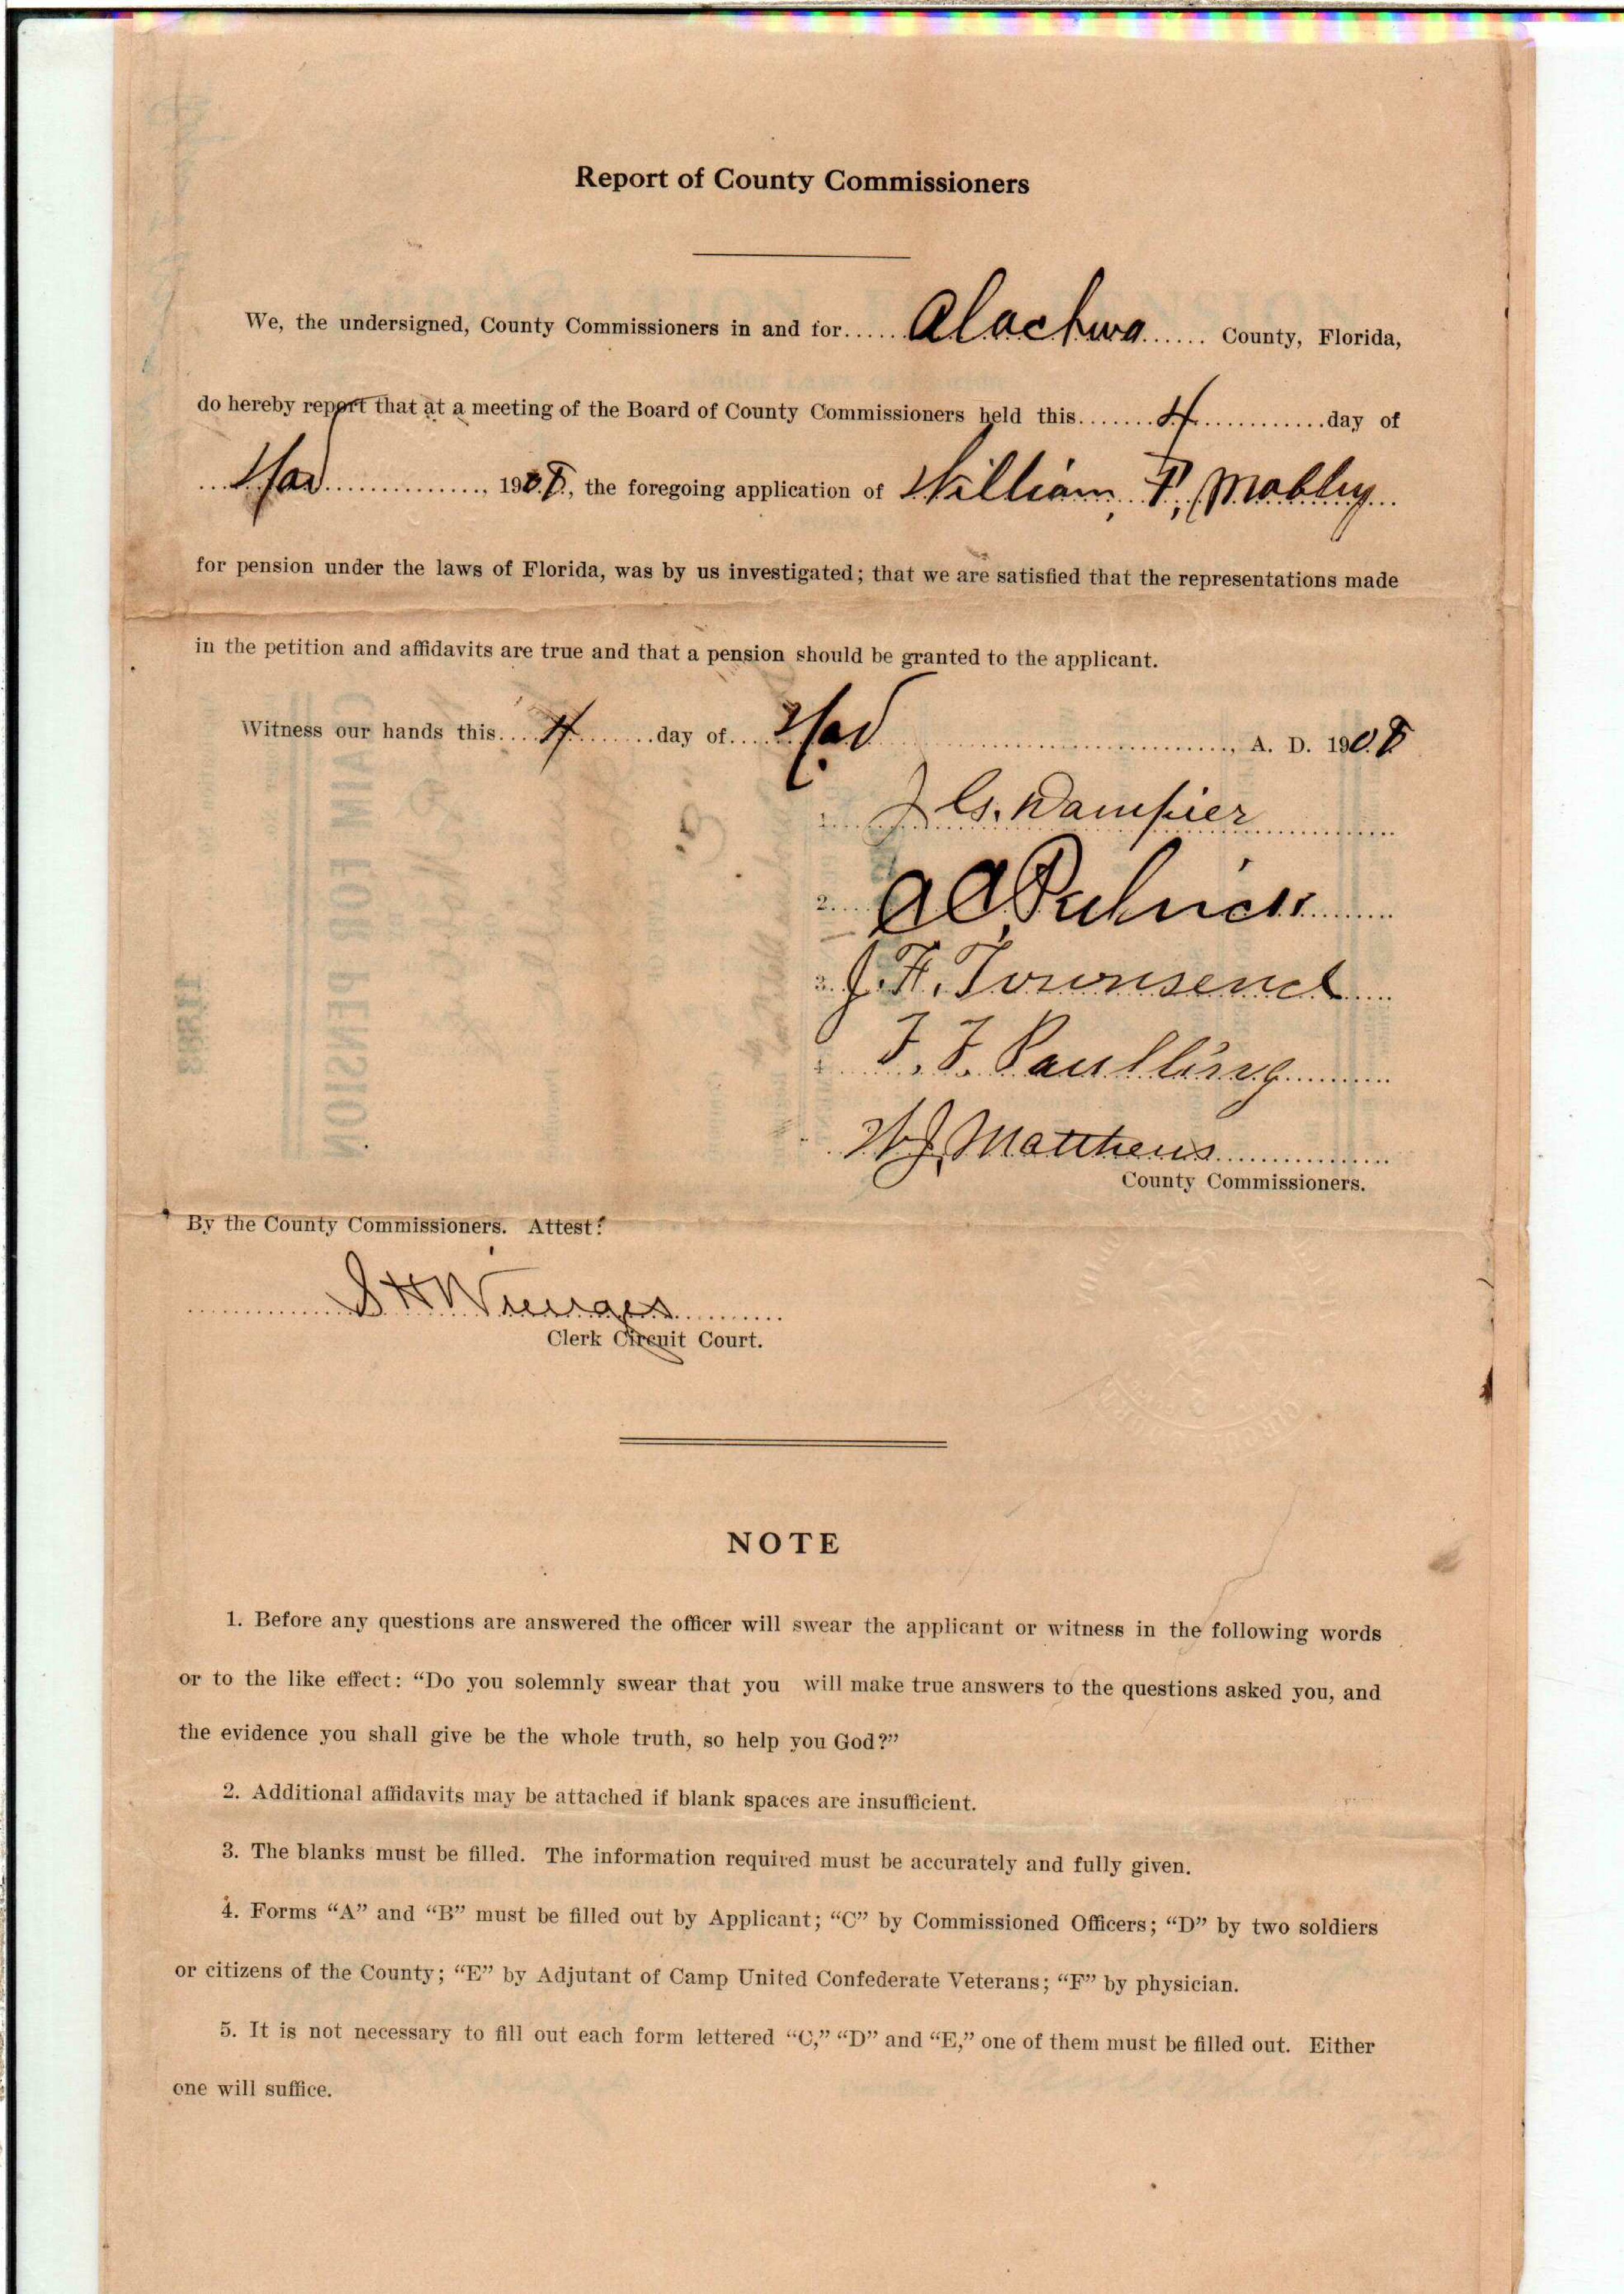 Report of County Commissioners
We, the undersigned, County Commissioners in and for Alachua County, Florida,
do hereby report that at a meeting of the Board of County Commissioners held this 4 day of
1908, the foregoing application of William P. Mobley
for pension under the laws of Florida, was by us investigated; that we are satisfied that the representations made
in the petition and affidavits are true and that a pension should be granted to the applicant.
Witness our hands this 4 day of A. D. 1908
1. J G. Dampier
2. A A
3. J. H. Townsend
4. F. F. Paulling
W J. Matthews
County Commissioners.
By the County Commissioners. Attest:
S H Wienges
Clerk Circuit Court.
NOTE
1. Before any questions are answered the officer will swear the applicant or witness in the following words
or to the like effect: “Do you solemnly swear that you will make true answers to the questions asked you, and
the evidence you shall give be the whole truth, so help you God?”
2. Additional affidavits may be attached if blank spaces are insufficient.
3. The blanks must be filled. The information required must be accurately and fully given.
4. Forms “A” and “B” must be filled out by Applicant; “C” by Commissioned Officers; “D” by two soldiers
or citizens of the County; “E” by Adjutant of Camp United Confederate Veterans; “F” by physician.
5. It is not necessary to fill out each form lettered “C,” “D” and “E,” one of them must be filled out. Either
one will suffice.